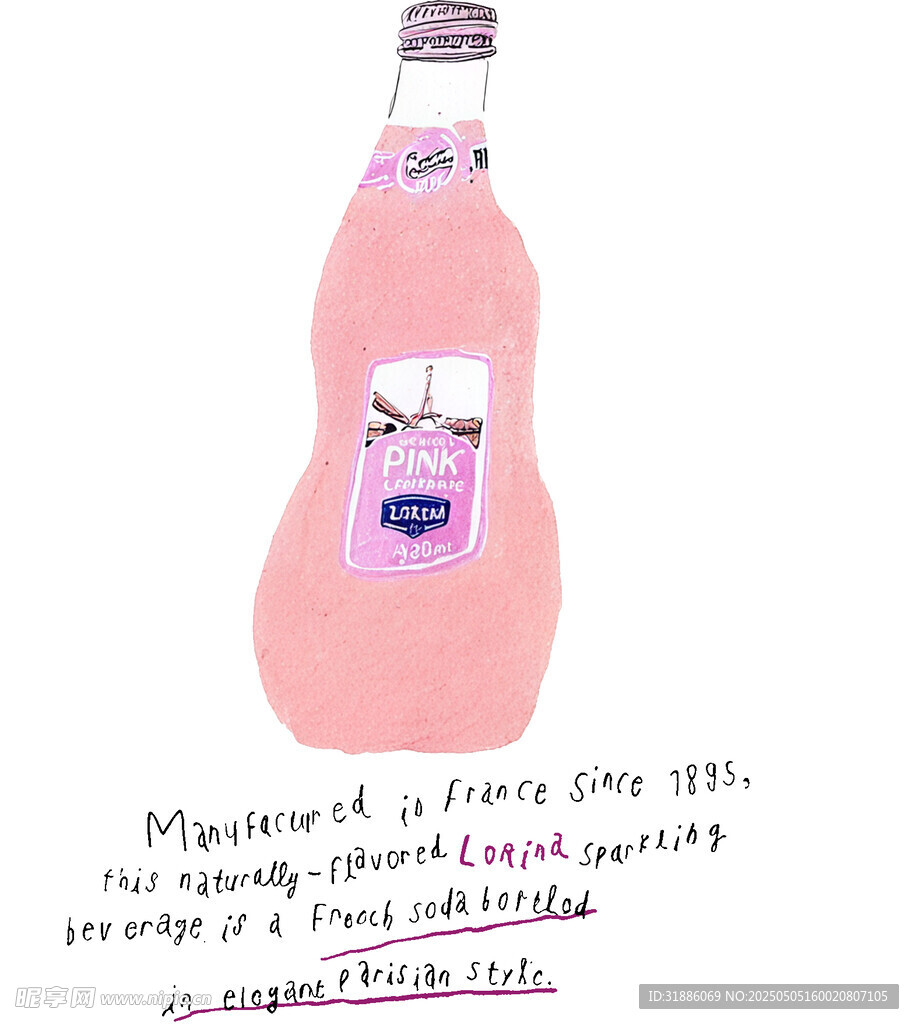 PINK
Manyfacured in France since 1895,
this naturally-flavored LORina sparkling
beverage. is a Frooch soda bortlod
in elegant parisian style.
昵享网 www.nipic.cn
ID:31886069 NO:20250505160020807105